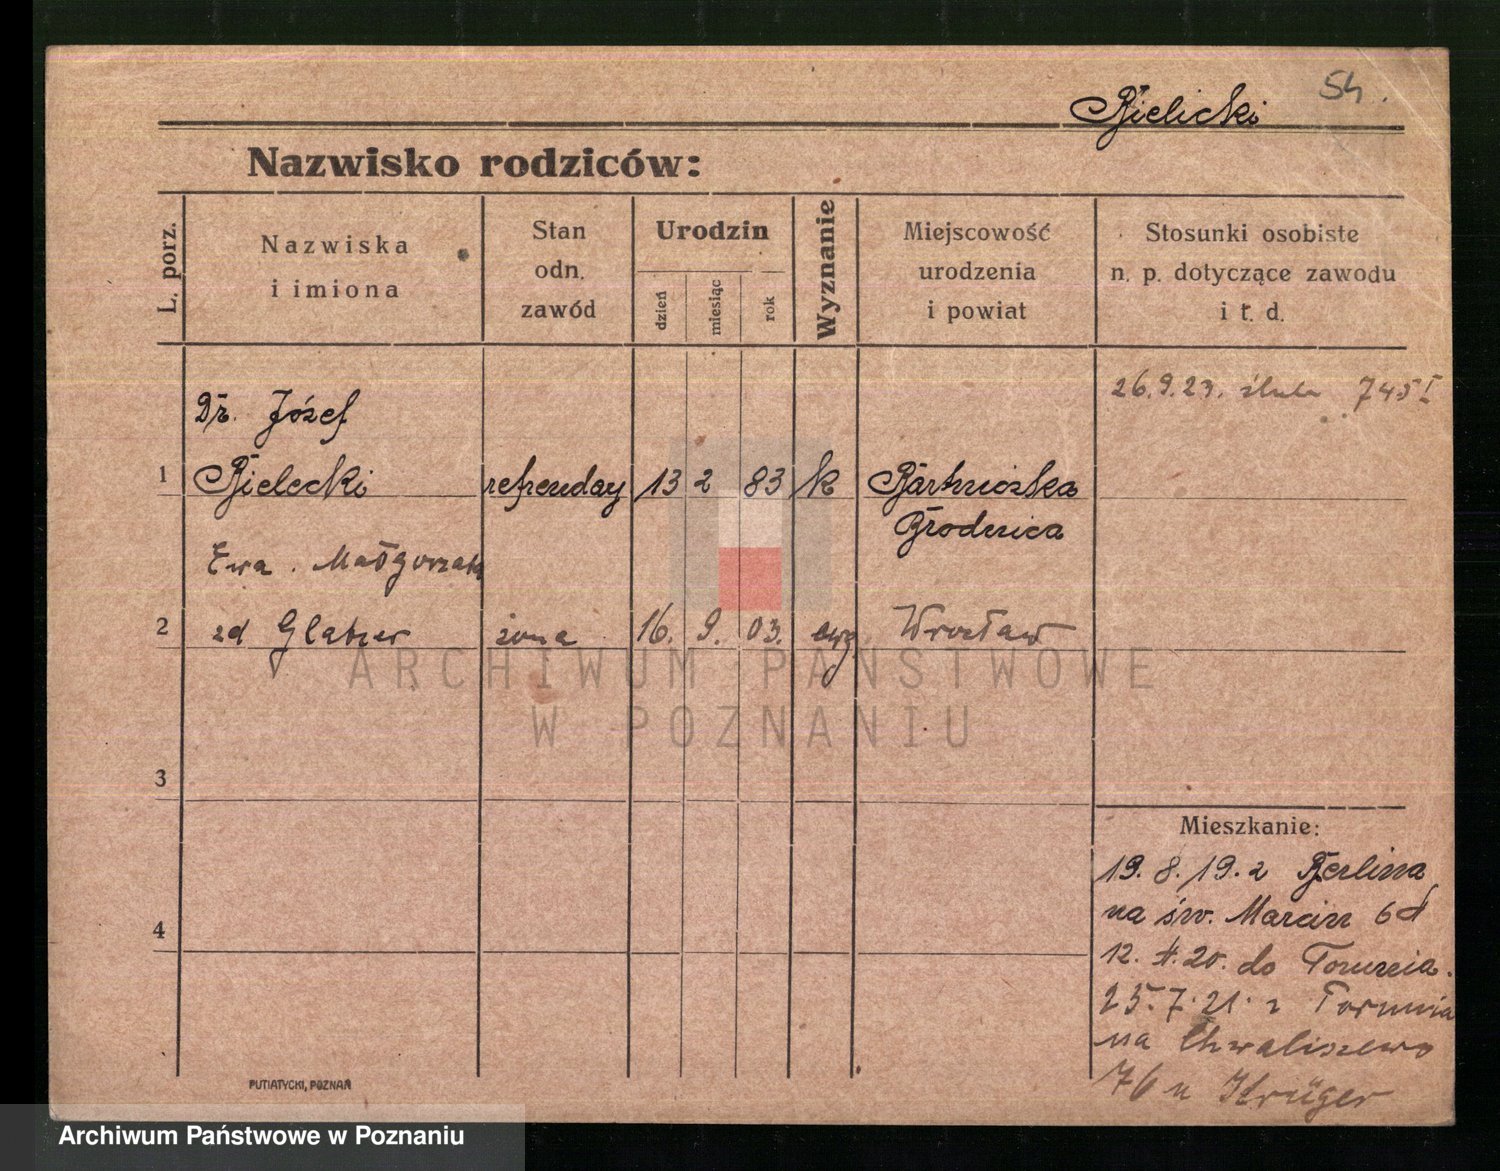 54.
Bielicki
Nazwisko rodziców:
L. porz.
Nazwiska
i imiona
Stan
odn.
zawód
Urodzin
dzień
miesiąc
rok
Wyznanie
Miejscowość
urodzenia
i powiat
Stosunki osobiste
n. p. dotyczące zawodu
i t. d.
26.9.23. ślub 745 I
Dr. Józef
1 Bielecki referenday 13 2 83 k
Brodnica
Ewa Małgorzata
2 zd Glatzer żona 16. 9. 03. ewg Wrocław
ARCHIWUM PAŃSTWOWE
W POZNANIU
3
Mieszkanie:
19.8.19. z Berlina
na św. Marcin 6d
4
12. 20. do Torunia.
25.7.21. z Torunia
na Chwaliszewo
76 u Krüger
PUTIATYCKI, POZNAŃ
Archiwum Państwowe w Poznaniu